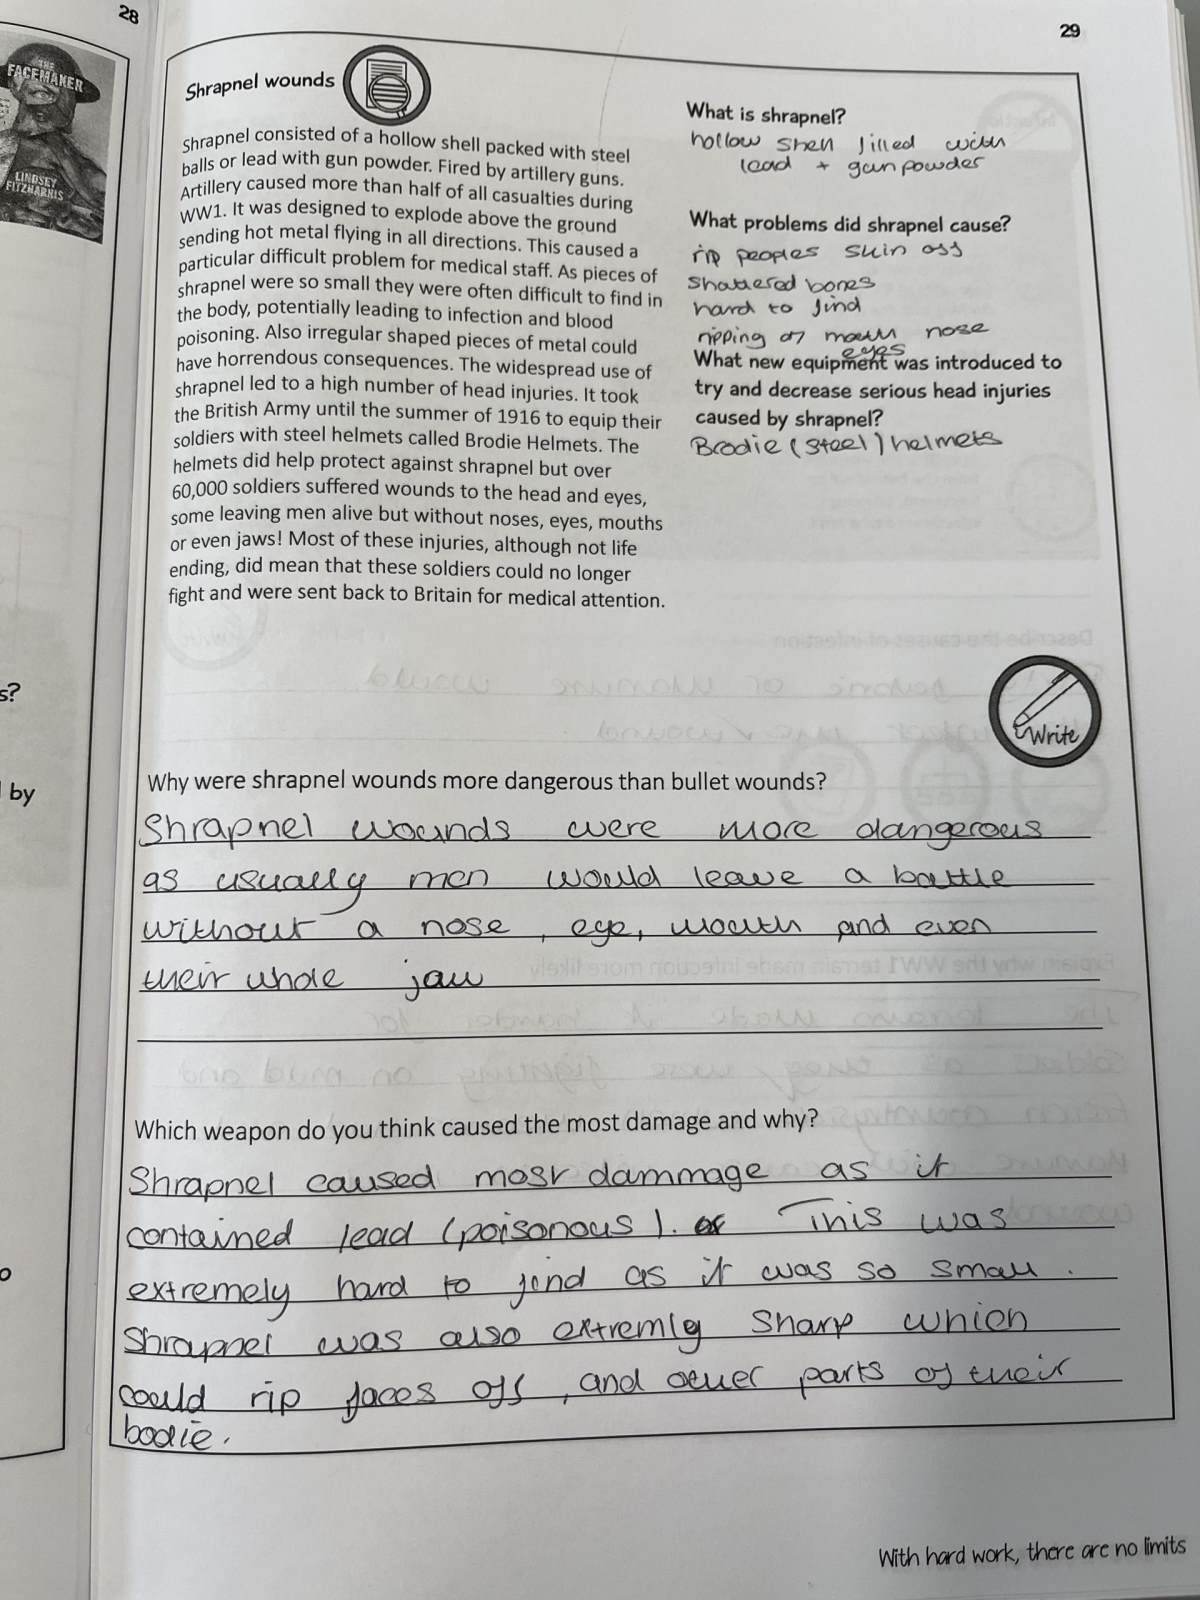 28
THE
FACEMAKER
LINDSEY
FITZHARRIS
s?
by
o
29
Shrapnel wounds
Shrapnel consisted of a hollow shell packed with steel
balls or lead with gun powder. Fired by artillery guns.
Artillery caused more than half of all casualties during
WW1. It was designed to explode above the ground
sending hot metal flying in all directions. This caused a
particular difficult problem for medical staff. As pieces of
shrapnel were so small they were often difficult to find in
the body, potentially leading to infection and blood
poisoning. Also irregular shaped pieces of metal could
have horrendous consequences. The widespread use of
shrapnel led to a high number of head injuries. It took
the British Army until the summer of 1916 to equip their
soldiers with steel helmets called Brodie Helmets. The
helmets did help protect against shrapnel but over
60,000 soldiers suffered wounds to the head and eyes,
some leaving men alive but without noses, eyes, mouths
or even jaws! Most of these injuries, although not life
ending, did mean that these soldiers could no longer
fight and were sent back to Britain for medical attention.
What is shrapnel?
hollow shell filled with
lead + gunpowder
What problems did shrapnel cause?
rip peoples skin off
shattered bones
hard to find
ripping of mouth nose
eyes
What new equipment was introduced to
try and decrease serious head injuries
caused by shrapnel?
Brodie (steel) helmets
Write
Why were shrapnel wounds more dangerous than bullet wounds?
Shrapnel wounds were more dangerous
as usually men would leave a battle
without a nose, eye, mouth and even
their whole jaw
Which weapon do you think caused the most damage and why?
Shrapnel caused most dammage as it
contained lead (poisonous). This was
extremely hard to find as it was so small.
Shrapnel was also extremly sharp which
could rip faces off, and other parts of their
bodie.
With hard work, there are no limits